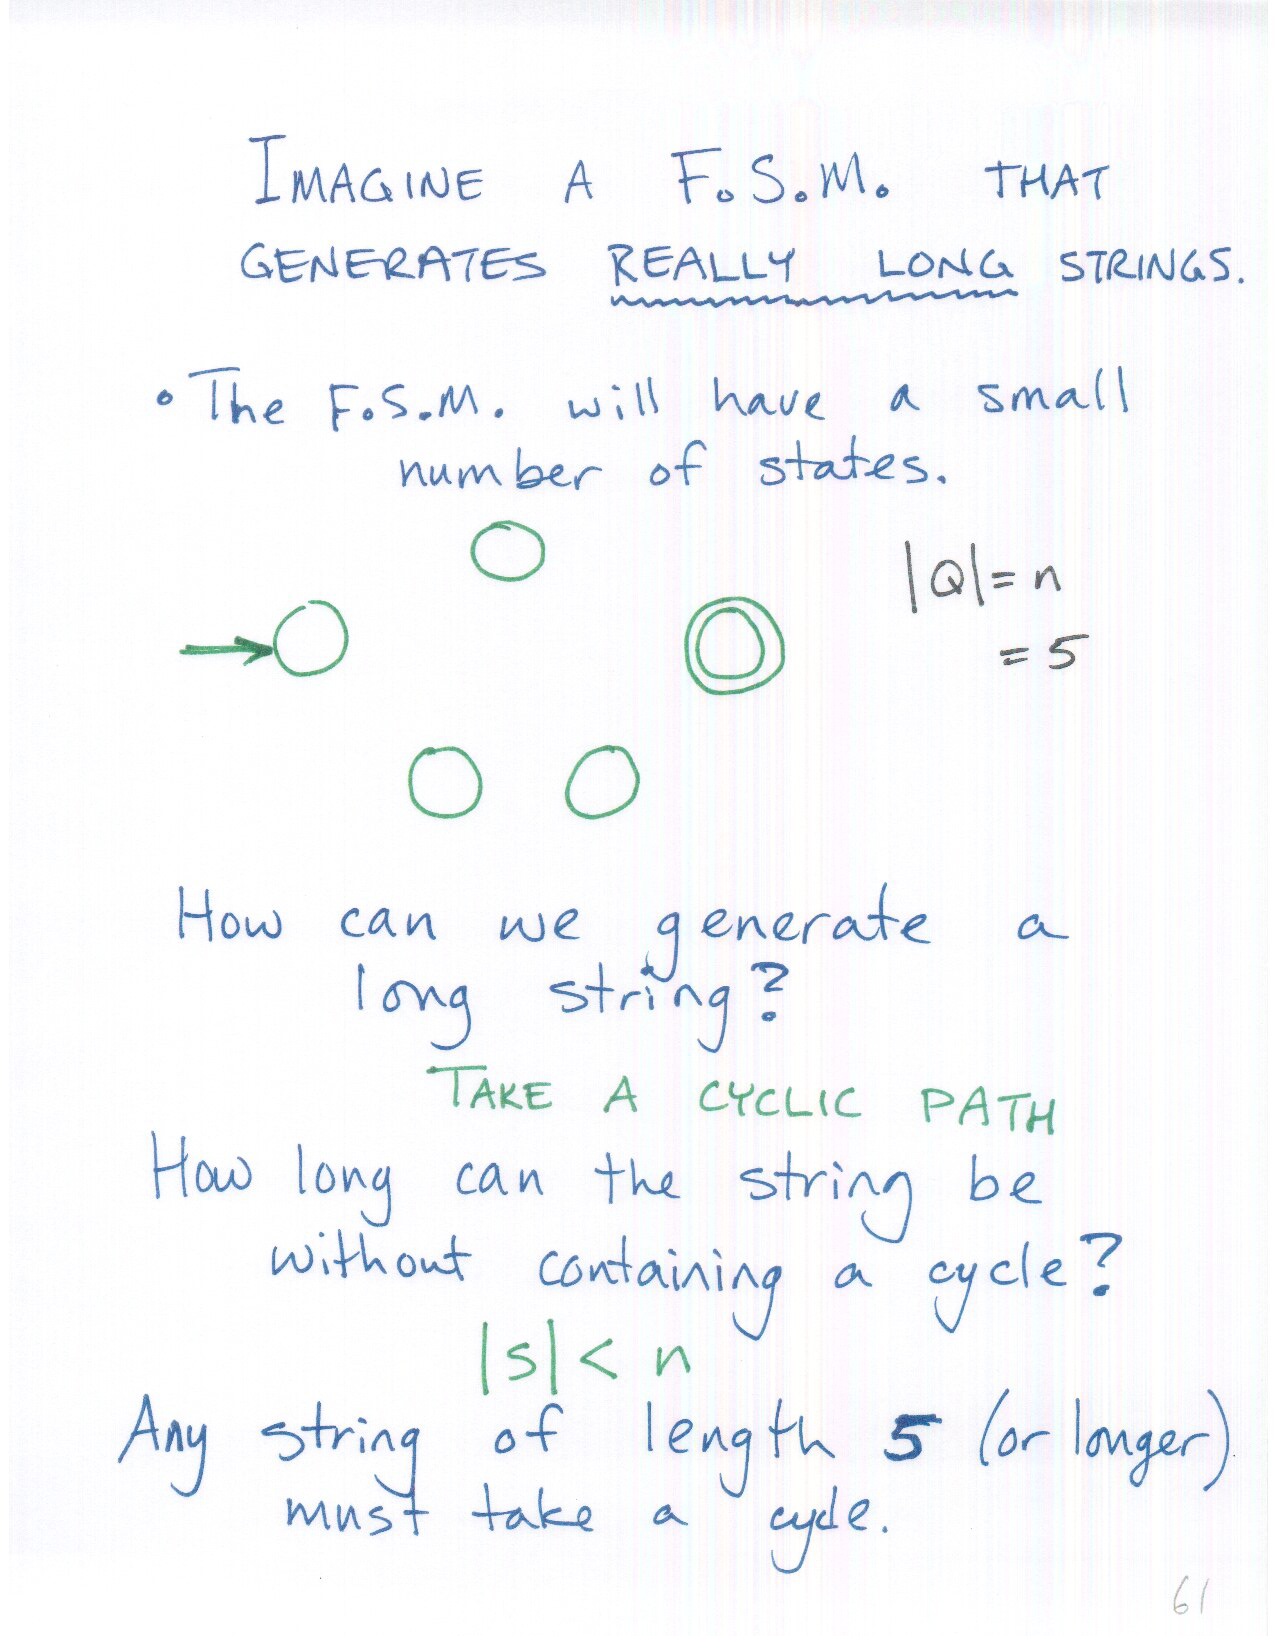 IMAGINE A F.S.M. THAT
GENERATES REALLY LONG STRINGS.
• The F.S.M. will have a small
number of states.
|Q| = n
= 5
How can we generate a
long string?
TAKE A CYCLIC PATH
How long can the string be
without containing a cycle?
|s| < n
Any string of length 5 (or longer)
must take a cycle.
61